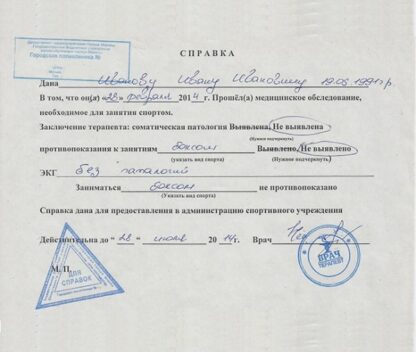 Городская поликлиника №
СПРАВКА
Дана Иванову Ивану Ивановичу 19.03.1991г.р.
В том, что он(а) «28» февраля 2014 г. Прошёл(а) медицинское обследование,
необходимое для занятия спортом.
Заключение терапевта: соматическая патология Выявлена, Не выявлена
(Нужное подчеркнуть)
противопоказания к занятиям боксом Выявлено, Не выявлено
(указать вид спорта) (Нужное подчеркнуть)
ЭКГ без патологий
Заниматься боксом не противопоказано
(Указать вид спорта)
Справка дана для предоставления в администрацию спортивного учреждения
Действительна до “ 28 “ июля 20 14г. Врач
М. П.
ДЛЯ
СПРАВОК
ВРАЧ
ТЕРАПЕВТ